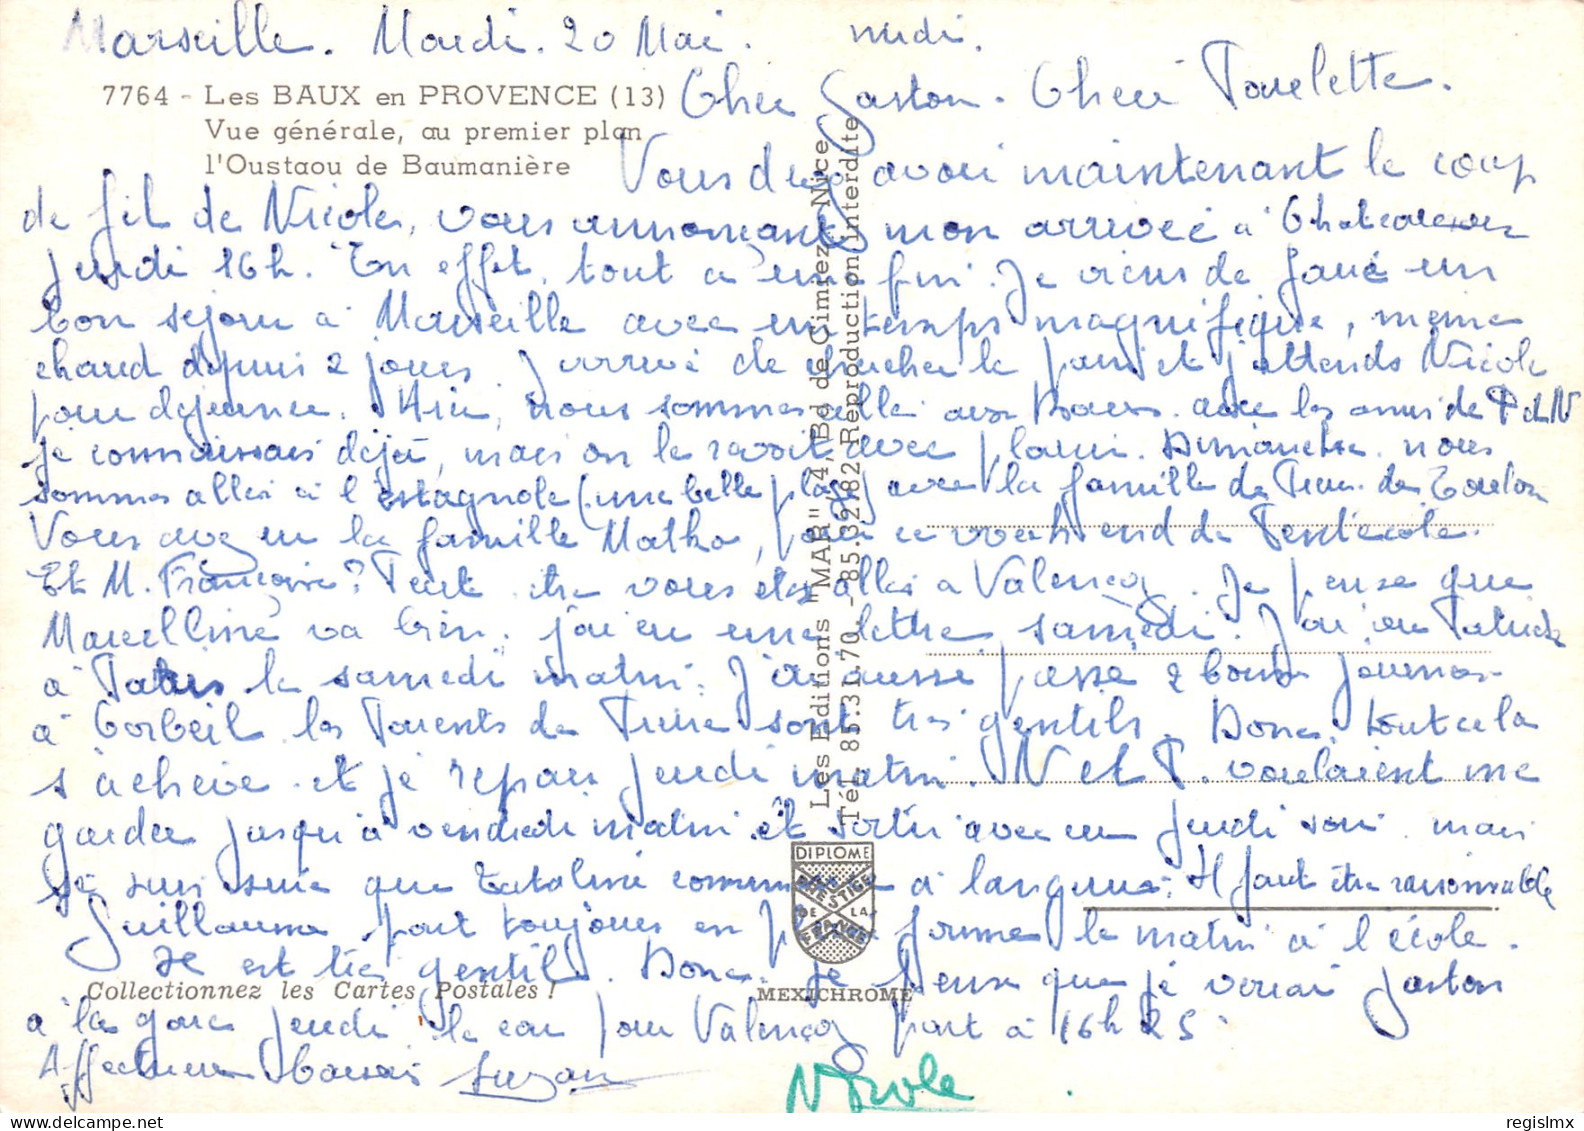 Marseille. Mardi. 20 Mai. midi.
7764 - Les BAUX en PROVENCE (13)
Vue générale, au premier plan
l'Oustaou de Baumanière
Cher Gaston. Cheré Paulette.
Vous devez avoir maintenant le coup
de fil de Nicole, vous annonçant mon arrivée à
jeudi 16h. En effet, tout a une fin. Je viens de faire un
bon sejour à Marseille avec un temps magnifique, meme
chaud depuis 2 jours. J'arrive de chercher le pain et j'attends Nicole
pour dejeuner. Hier, nous sommes allés aux Baux. avec les amis de P et N
je connaissais déjà, mais on le revoit avec plaisir. Dimanche. nous
sommes allés à l'estagnole (une belle plage) avec la famille de de Toulon
Vous avez eu la famille Matho, pour ce week end de Pentecote.
Et M. Françoise? Peut etre vous etes allés a Valençay. Je pense que
Marcelline va bien. j'ai eu une lettre samedi. J'ai vu Patrick
à Paris le samedi matin. J'ai aussi passé 2 bonnes journées
à Corbeil les Parents de sont très gentils. Donc, tout cela
s'achève et je repars jeudi matin. N et P. voulaient me
garder jusqu'à vendredi matin et sortir avec eux jeudi soir. mais
je suis sure que commence à languir. Il faut être raisonnable
Guillaume part toujours en pleine forme le matin à l'école.
Il est très gentil. Donc. je pense que je verrai Gaston
à la gare jeudi. le car pour Valençay part à 16h25.
Affectueux baisers Suzan
Nicole
Les Editions "MAR", 4, Bd de Cimiez - Nice
Tél. 85.31.70 - 85.32.82 Reproduction interdite
DIPLOME
PRESTIGE
DE LA
FRANCE
Collectionnez les Cartes Postales !
MEXICHROME
regislmx